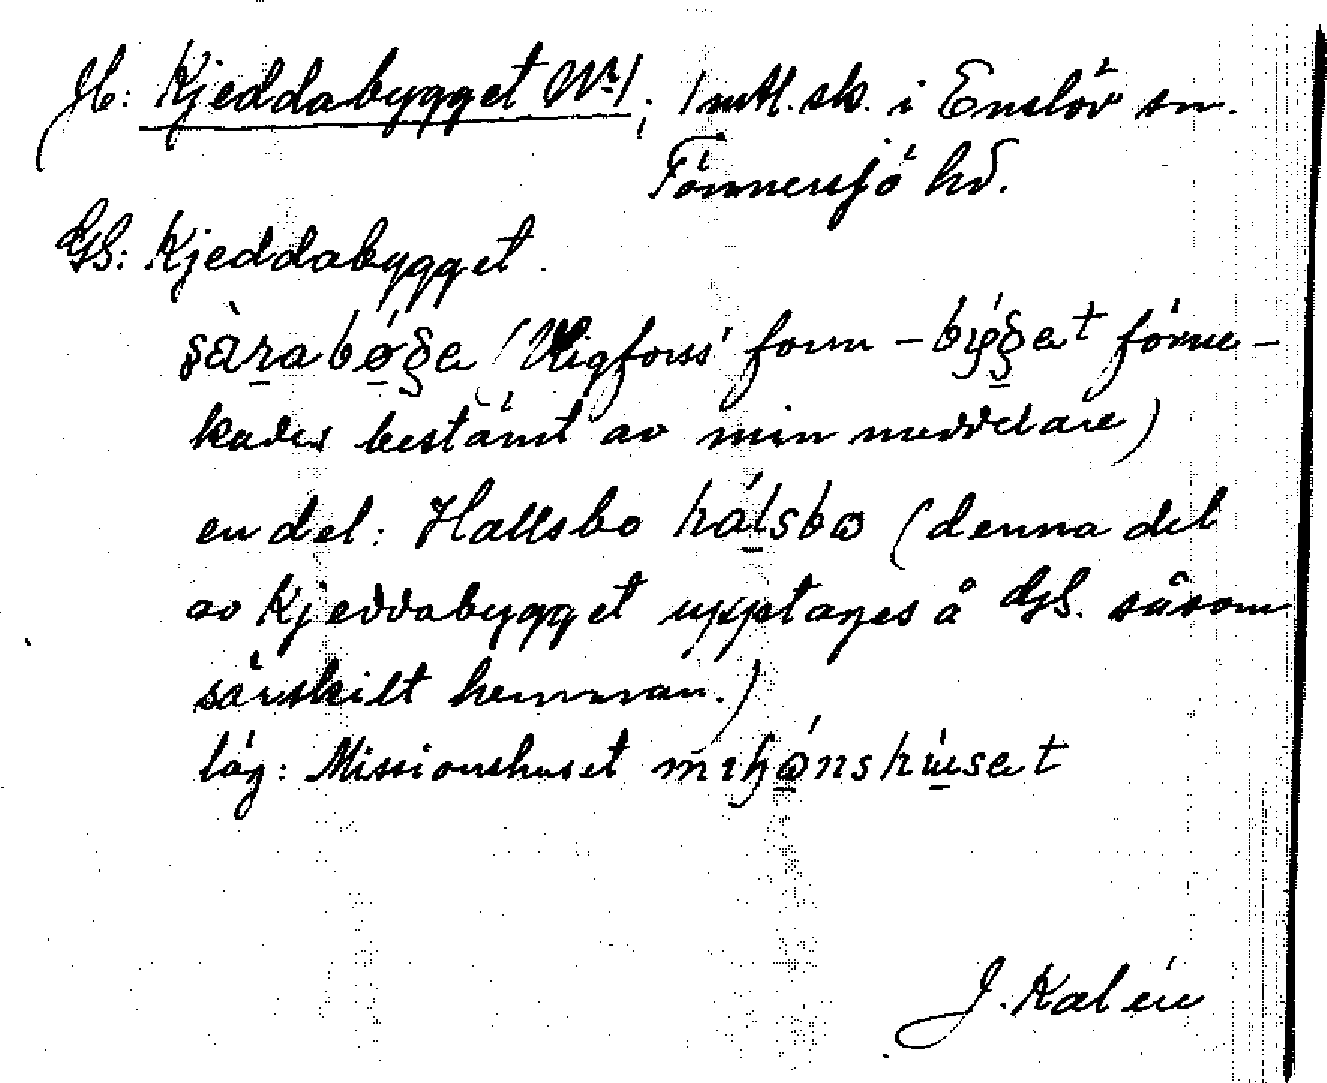 Jb: Kjeddabygget Nr 1; 1 mtl. sk. i Enslöv sn.
Tönnersjö hd.
GS: Kjeddabygget.
(Wigforss' form – förne-
kades bestämt av min meddelare)
en del: Hallsbo hálsbo (denna del
av Kjeddabygget upptages å GS. såsom
särskilt hemman.)
läg: Missionshuset
J. Kalén